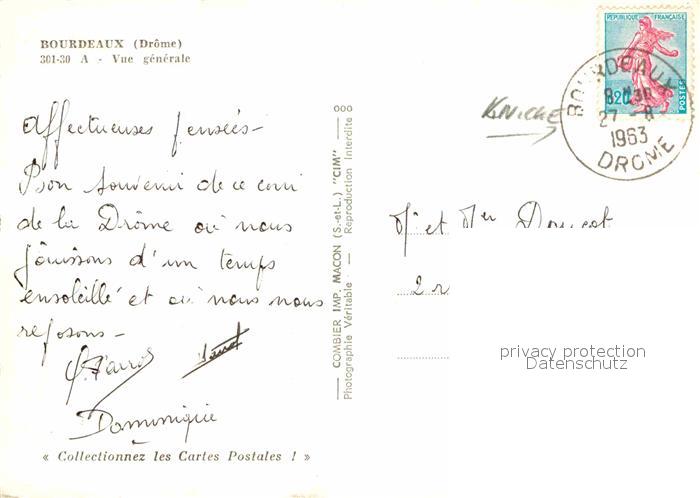 BOURDEAUX (Drôme)
301-30 A - Vue générale
Affectueuses pensées -
Bon souvenir de ce coin
de la Drôme où nous
jouissons d'un temps
ensoleillé et où nous nous
reposons -
Dominique
« Collectionnez les Cartes Postales ! »
COMBIER IMP. MACON (S.-et-L.) "CIM"
Photographie Véritable — Reproduction Interdite
KNICHE
REPUBLIQUE FRANÇAISE
0,20
POSTES
BOURDEAUX
8 H 30
27 - 8
1963
DROME
Mr et Mme
2 r
privacy protection
Datenschutz